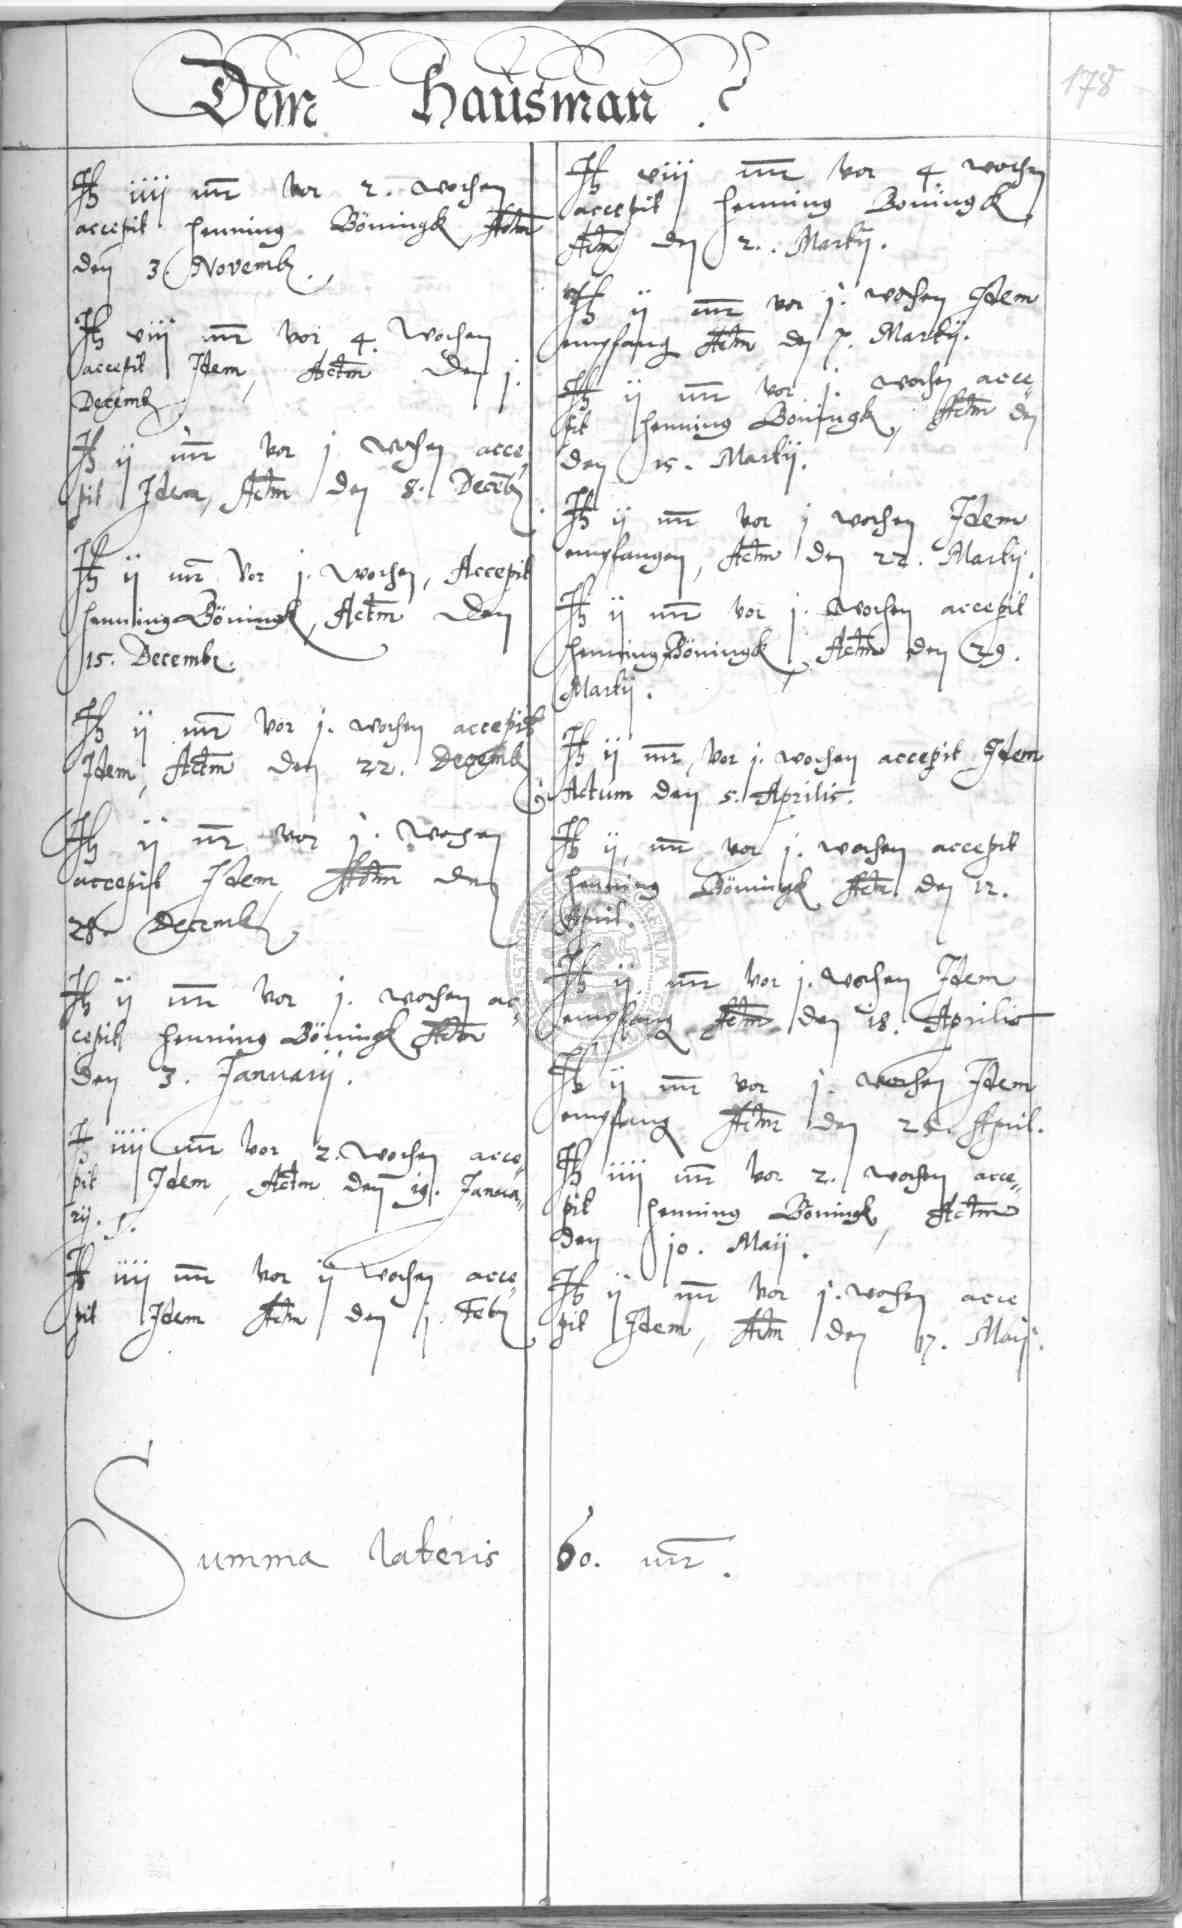 Dem Hausman.
178
It iiii mr vor 2. wochen
accepit Henning Böningk, Actm
den 3. Novemb.
It viii mr vor 4. Wochen
accepit Idem, Actm den j.
Decemb
It ij mr vor j wochen acce,
pit Idem, Actm den 8. Decemb
It ij mr vor j. wochen, Accepit
Henning Böningk, Actm den
15. Decembr.
It ij mr vor j. wochen accepit
Idem, Actm den 22. Decemb
It ij mr vor j. wochen
accepit Idem Actm den
28 Decemb
It ij mr vor j. wochen ac„
cepit Henning Böningk Actm
den 3. Januarij.
It iiii mr vor 2. wochen acce„
pit Idem, Actm den 19. Janua„
rij.
It iiii mr vor ij wochen acce
pit Idem Actm den j. Feb
It viii mr vor 4 wochen
accepit Henning Boningk
Actm den 2. Martij.
It ij mr vor j. wochen Idem
empfang Actm den 7. Martij.
It ij mr vor j. wochen acce„
pit Henning Boningk, Actm den
den 15. Martij.
It ij mr vor j wochen Idem
empfangen, Actm den 22. Martij.
It ij mr vor j. wochen accepit
Henning Böningk, Actm den 29.
Martij.
It ij mr, vor j. wochen accepit Idem
Actum den 5. Aprilis.
It ij mr vor j. wochen accepit
Henning Böningk Actm den 12.
April.
It ij mr vor j. wochen Idem
empfang Actm den 18. Aprilis
It ij mr vor j. wochen Idem
empfang Actm den 25. April.
It iiii mr vor 2. wochen acce„
pit Henning Böningk, Actm
den 10. Maij.
It ij mr vor j. wochen acce
pit Idem, Actm den 17. Maij.
Summa lateris 60. mr.